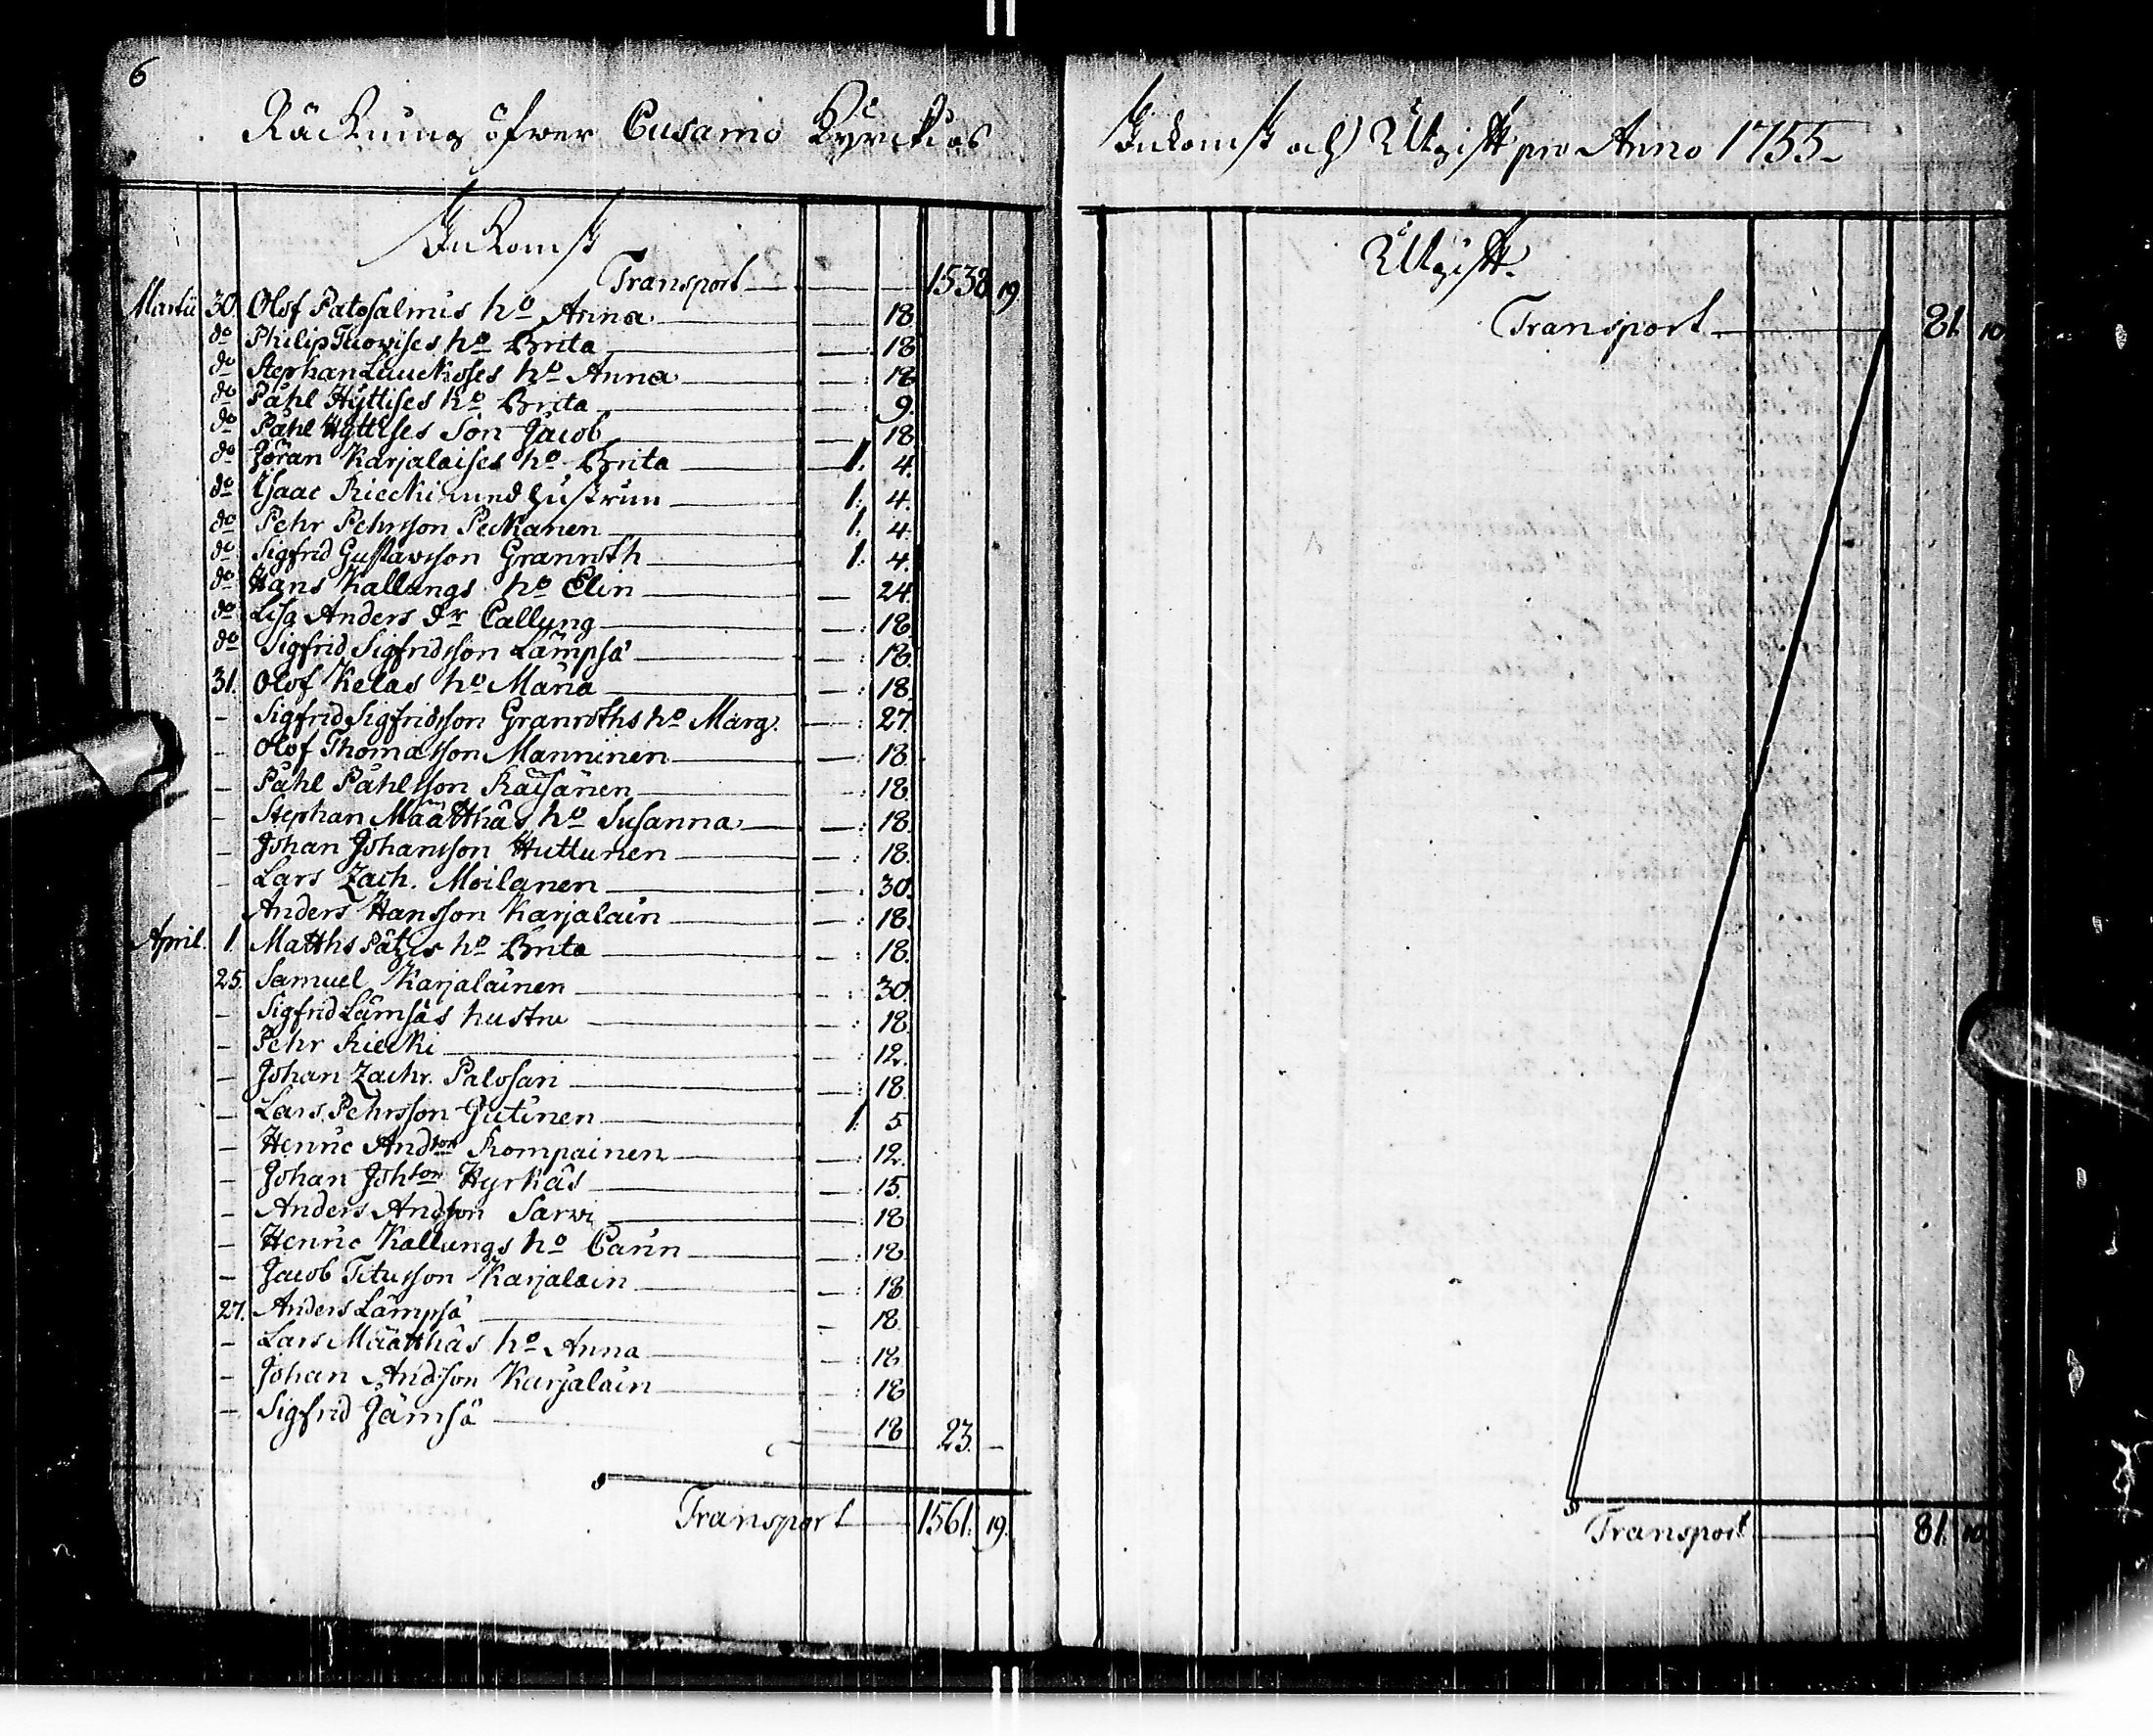 6
Räckning öfwer Cusamo Kyrckios
Inkomst
Transport 1538 19
Martii 30. Olof Palosalmis ho Anna 18
do Philip Tuovises ho Brita 18
do Stephan Luuckoses ho Anna 18
do Påhl Hyttises ho Brita 9.
do Påhl Hyttises Son Jacob 18
do Jöran Karjalaises ho Brita 1. 4.
do Isaac Riecki med hustrun 1. 4.
do Pehr Pehrsson Peckanen 1. 4.
do Sigfrid Gustavsson Granroth 1. 4.
do Hans Kallungs ho Elin 24.
do Lisa Anders dr Callung 18.
do Sigfrid Sigfridsson Lämpsä 18.
31. Olof Kelas ho Maria 18.
– Sigfrid Sigfridsson Granroths ho Marg. 27.
– Olof Thomasson Manninen 18.
– Påhl Påhlsson Räisänen 18.
– Stephan Määtthäs ho Susanna 18.
– Johan Johansson Huttunen 18.
– Lars Zach. Moilanen 30.
Anders Hansson Karjalain 18.
April. 1. Matths Pätzis ho Brita 18.
25. Samuel Karjalainen 30.
– Sigfrid Lämsäs hustru 18.
– Pehr Riecki 12.
– Johan Zachr. Palosari 18.
– Lars Pehrsson Jutinen 1. 5
– Henric Andson Kompainen 12.
– Johan Johson Hyrkäs 15.
– Anders Andsson Sarvi 18
– Henric Kallungs ho Carin 18.
– Jacob Titusson Karjalain 18
27. Anders Lämpsä 18.
– Lars Määtthäs ho Anna 18
– Johan Andsson Karjalain 18
– Sigfrid Jämsä 18 23. –
Transport 1561. 19.
Inkomst och Uthgift pro Anno 1755
Uthgift.
Transport 81. 10
Transport 81. 10